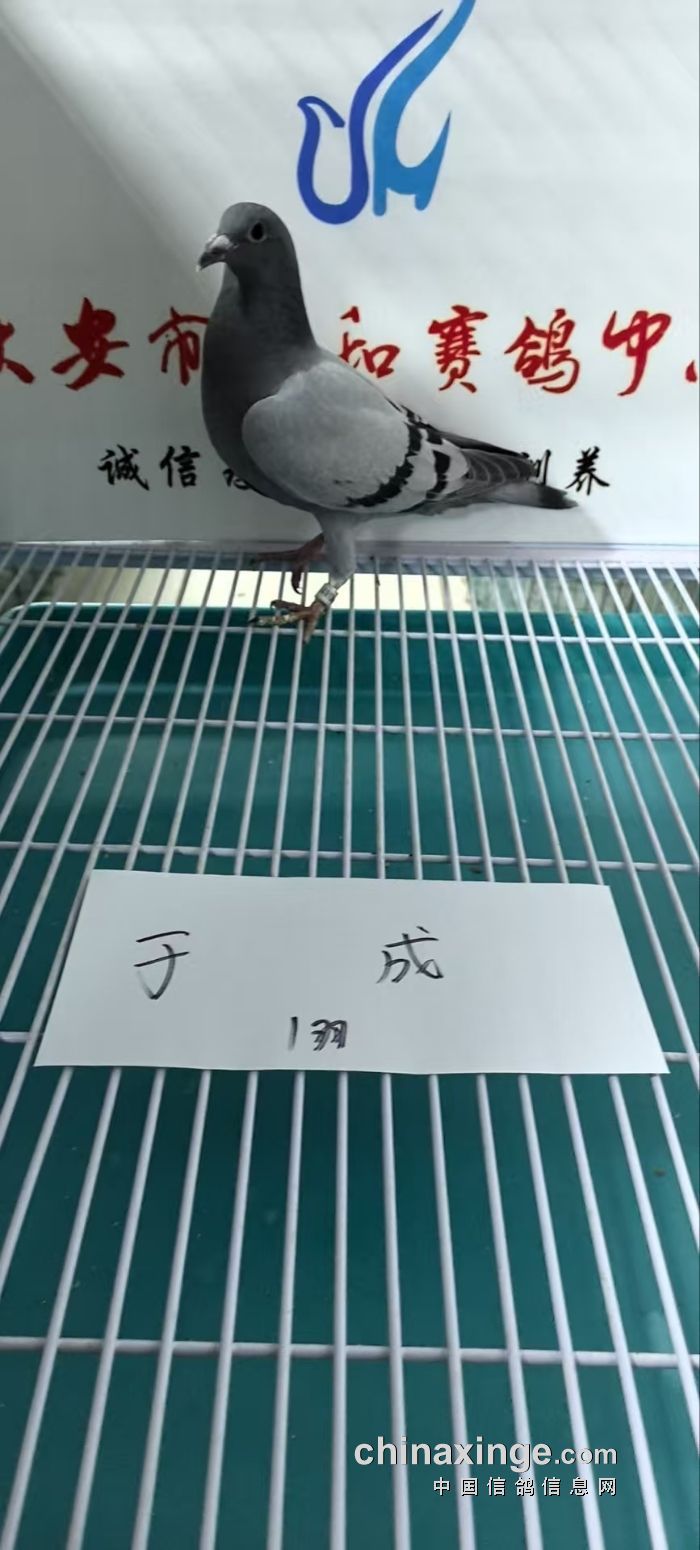 安市 和赛鸽中
诚信 养
于 成
1羽
chinaxinge.com
中国信鸽信息网